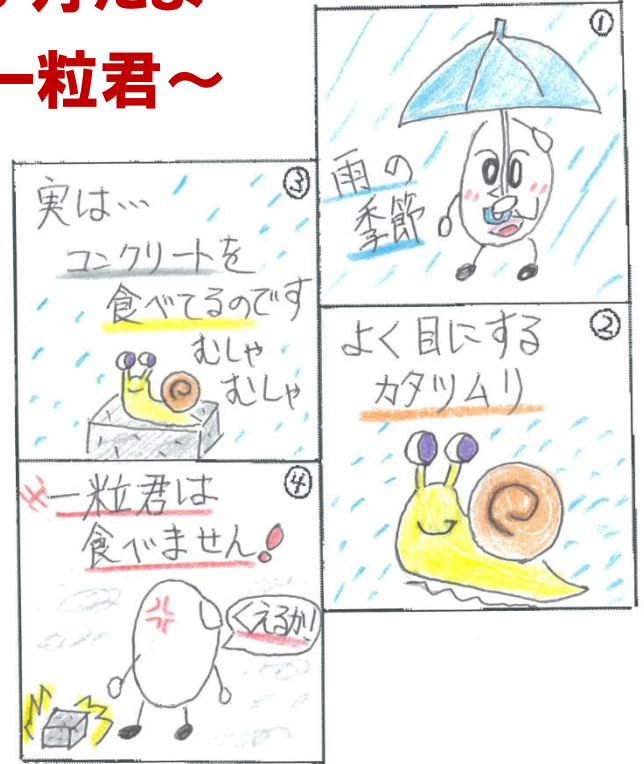 一粒君～
①
雨の
季節
②
よく目にする
カタツムリ
③
実は…
コンクリートを
食べてるのです
むしゃ
むしゃ
④
※一粒君は
食べません!
くえるか!